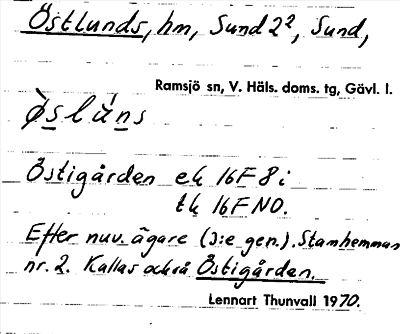 Östlunds, hm, Sund 2², Sund,
Ramsjö sn, V. Häls. doms. tg, Gävl. l.
Östigården ek 16F 8i
tk 16F NO.
Efter nuv. ägare (3:e gen.). Stamhemman
nr. 2. Kallas också Östigården.
Lennart Thunvall 1970.